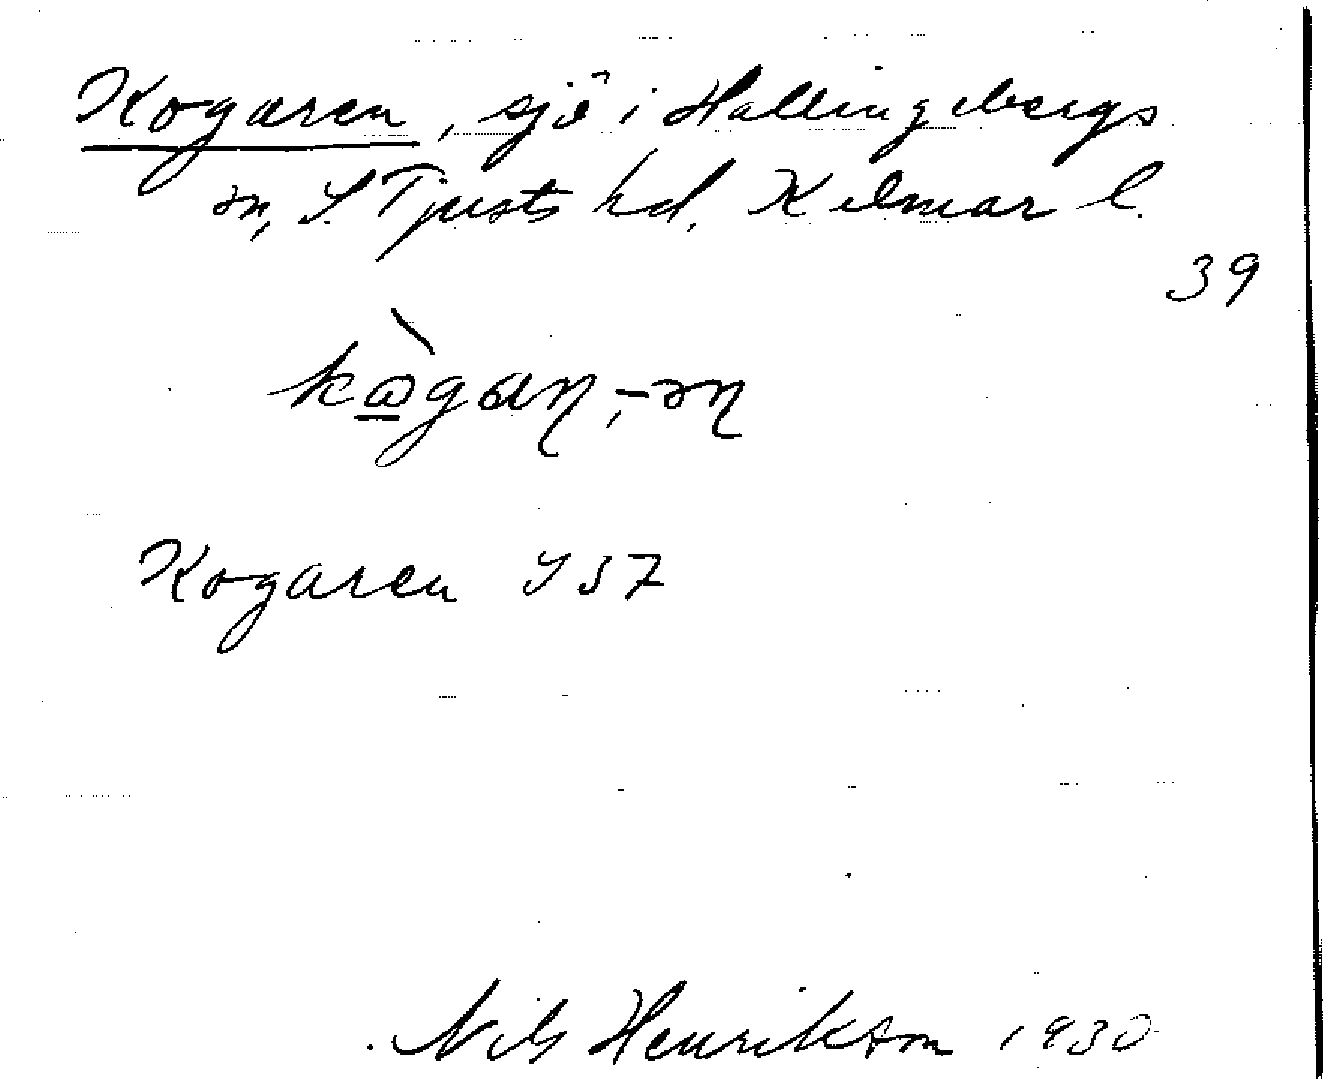 Kogaren, sjö i Hallingebergs
sn, S. Tjusts hd, Kalmar l.
39
Kogaren S 37
Nils Henrikson 1930